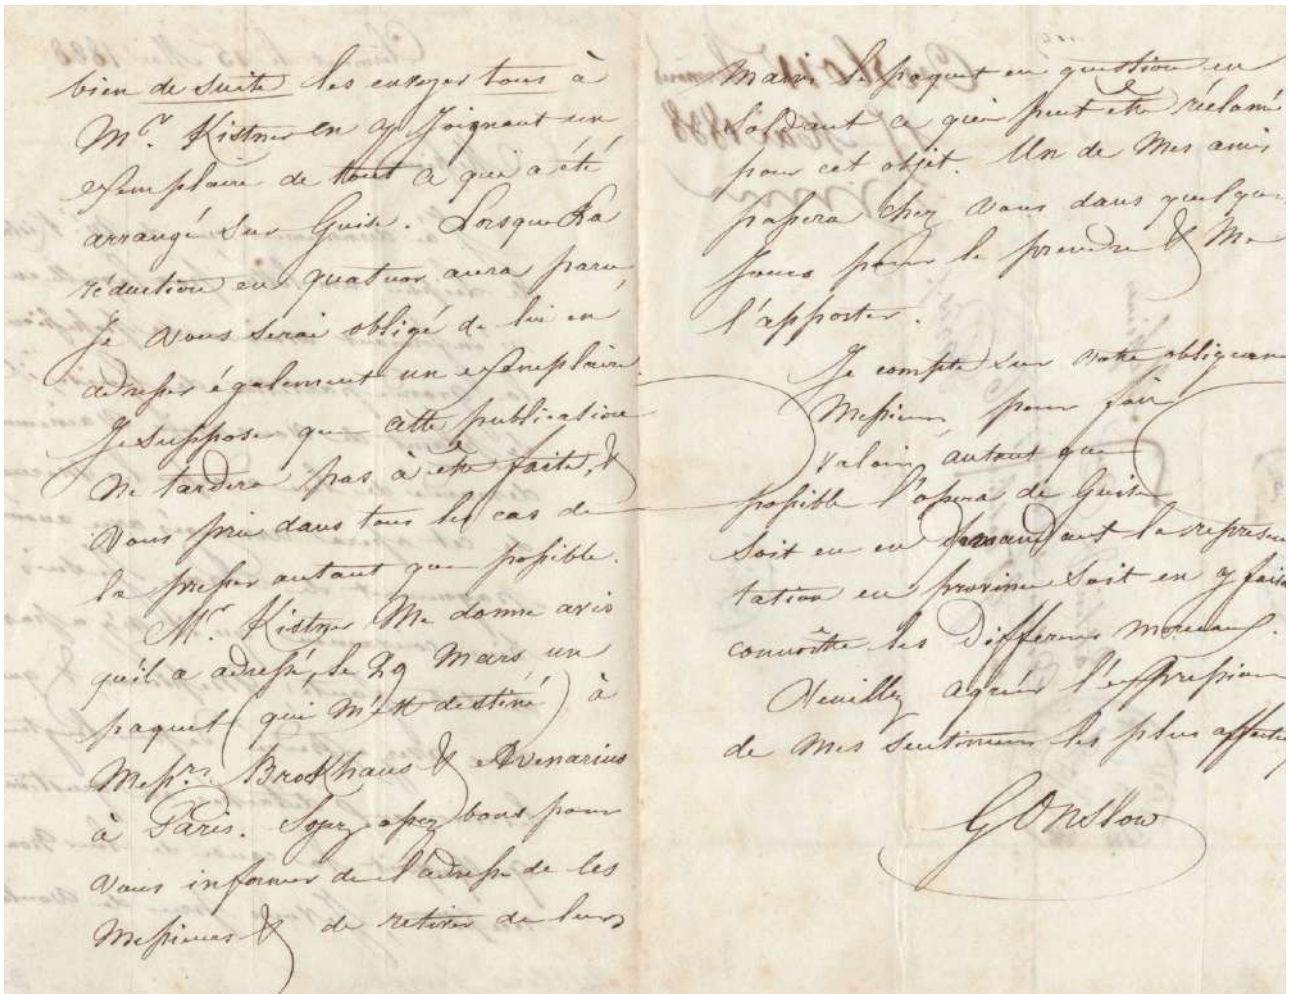 bien de suite les envoyer tous à
Mr. Kistner en y Joignant un
exemplaire de tout ce qui a été
arrangé sur Guise. Lorsque la
réduction en quatuor aura paru
Je vous serai obligé de lui en
adresser également un exemplaire.
Je suppose que cette publication
ne tardera pas à être faite, &
vous prie dans tous les cas de
la presser autant que possible.
Mr. Kistner me donne avis
qu'il a adressé, le 29 Mars, un
paquet (qui m'est destiné) à
Messrs. Brokhaus & Avenarius
à Paris. Soyez assez bons pour
vous informer de l'adresse de ces
Messieurs & de retirer de leurs
mains le paquet en question en
soldant ce qui peut être réclamé
pour cet objet. Un de mes amis
passera chez vous dans quelques
Jours pour le prendre & me
l'apporter.
Je compte sur votre obligeance
Messieurs pour faire
valoir, autant que
possible l'opera de Guise
soit en en demandant la représen
tation en province soit en y faisa
connoître les differens morceaux.
Veuillez agréer l'expression
de mes sentimens les plus affectu
GOnslow